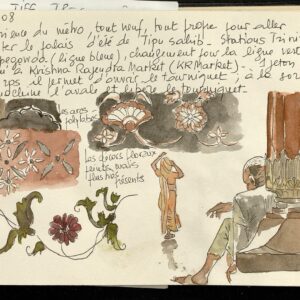 08
métro tout neuf, tout propre pour aller
le palais d'été de Tipu sahib. Stations Trini
(ligne bleue), changement pour la ligne vert
Krishna Rajendra Market (KR Market). 1 jeton
il permet d'ouvrir le tourniquet, à la so
l'avale et libère le tourniquet.
Les arcs
polylobés
Les décors floraux
peints, aussi
plus présents